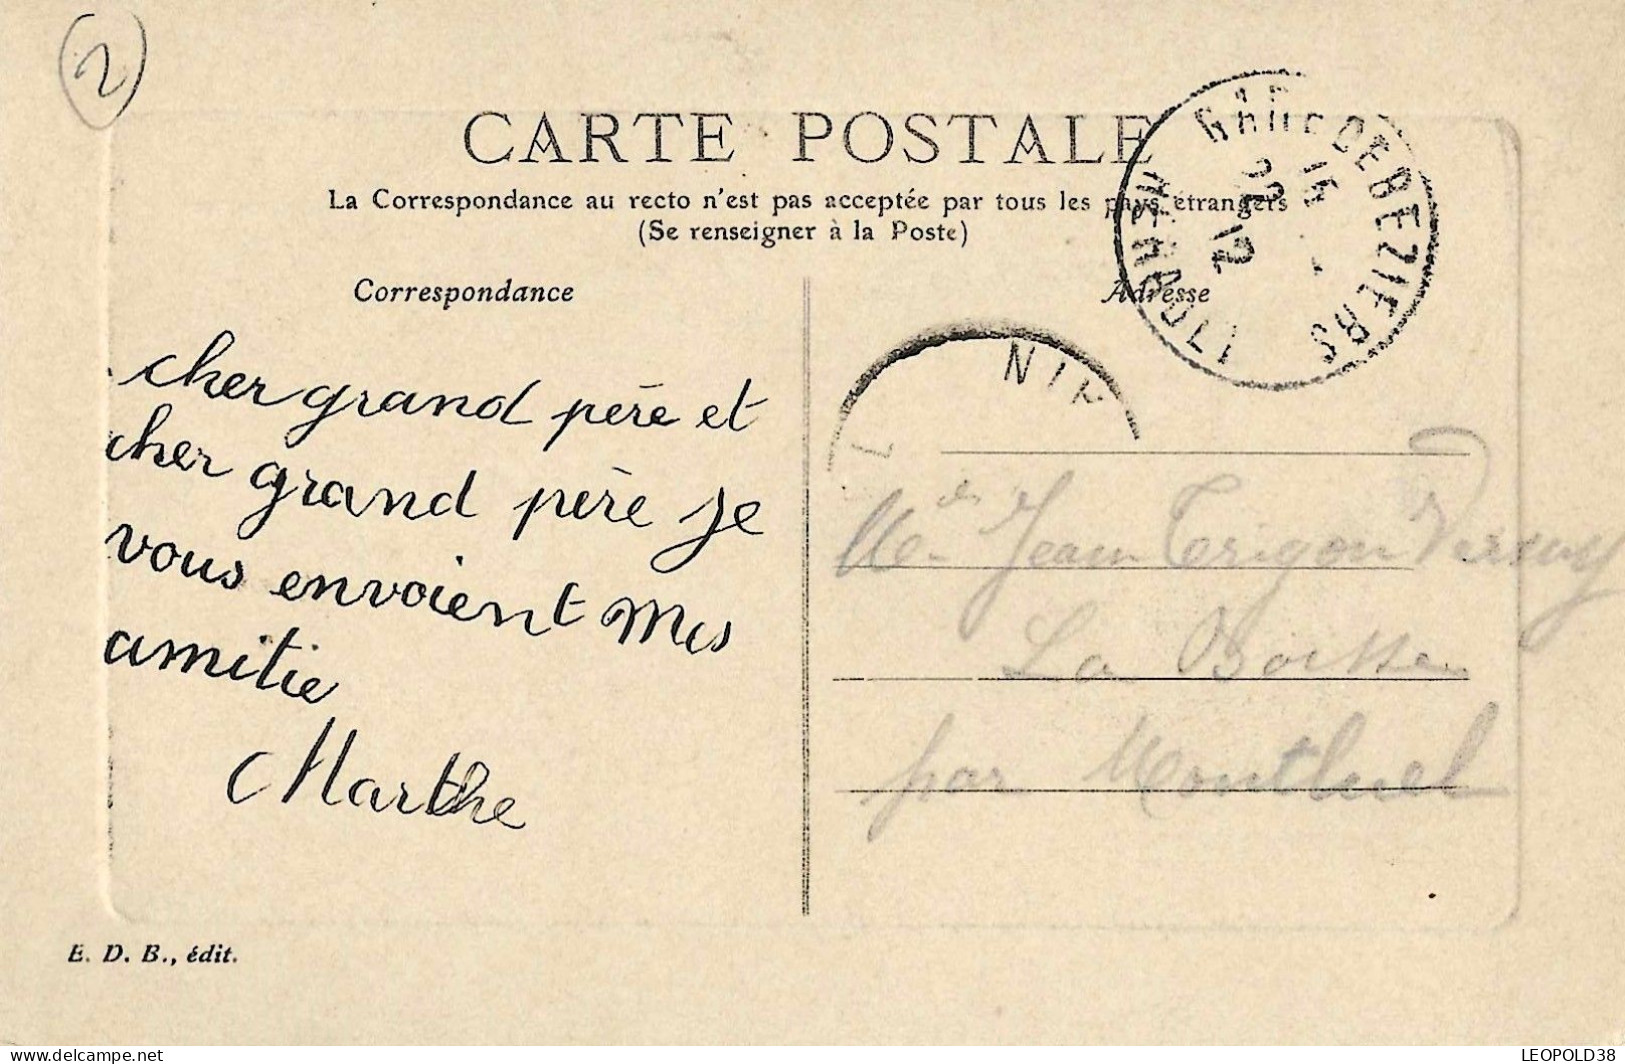 2
CARTE POSTALE
La Correspondance au recto n'est pas acceptée par tous les pays étrangers
(Se renseigner à la Poste)
Correspondance
Adresse
GARE DE BEZIERS
HERAULT
15
22
12
NIE
cher grand père et
cher grand père je
vous envoient Mes
amitie
Marthe
Jean Trigon
La Boisse
par Montluel
E. D. B., édit.
LEOPOLD38
www.delcampe.net